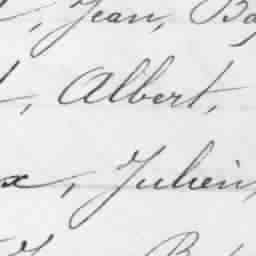 , Jean, Ba
, Albert,
x, Julien,